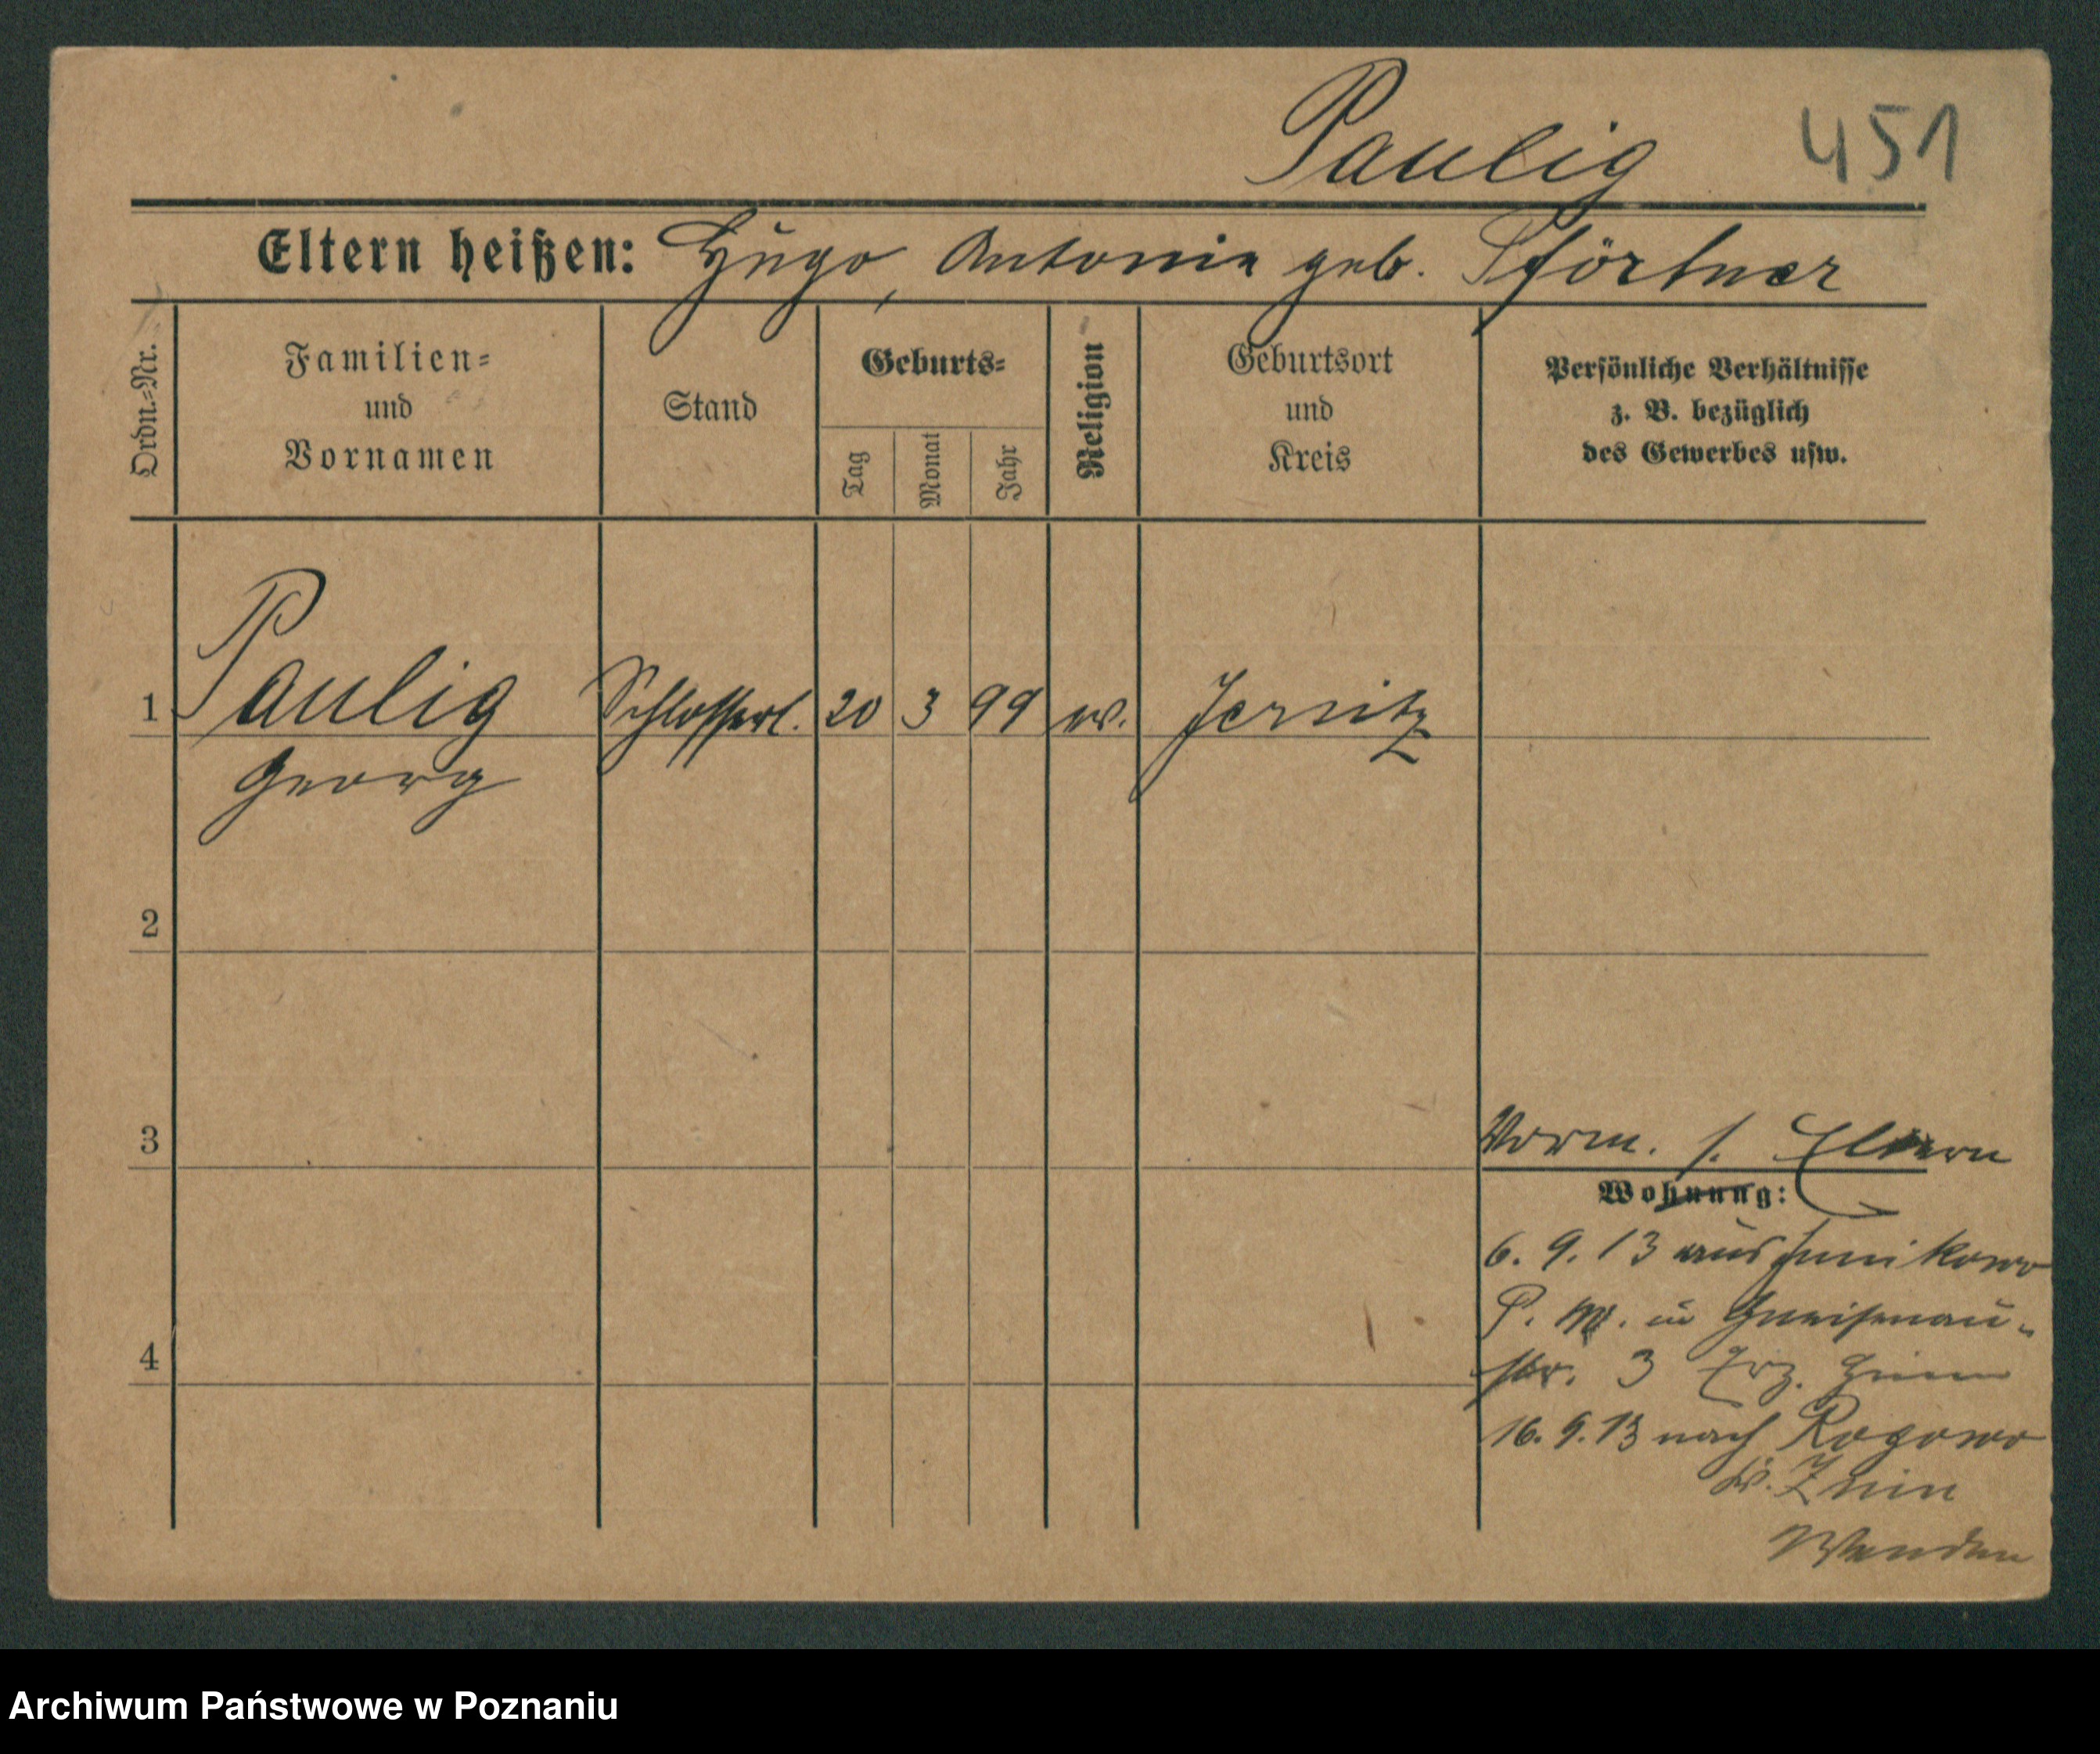 Paulig 451
Eltern heißen: Hugo, Antonie geb. Pförtner
Ordn.-Nr.
Familien-
und
Vornamen
Stand
Geburts-
Tag
Monat
Jahr
Religion
Geburtsort
und
Kreis
Persönliche Verhältnisse
z. B. bezüglich
des Gewerbes usw.
1 Paulig Schlosserl. 20 3 99 ev. Jersitz
Georg
2
3
Vorm. s. Eltern
Wohnung:
6. 9. 13 aus Junikowo
P. W. in Gneisenau-
str. 3
16. 9. 13 nach Rogowo
Kr. Znin
4
Wenden
Archiwum Państwowe w Poznaniu